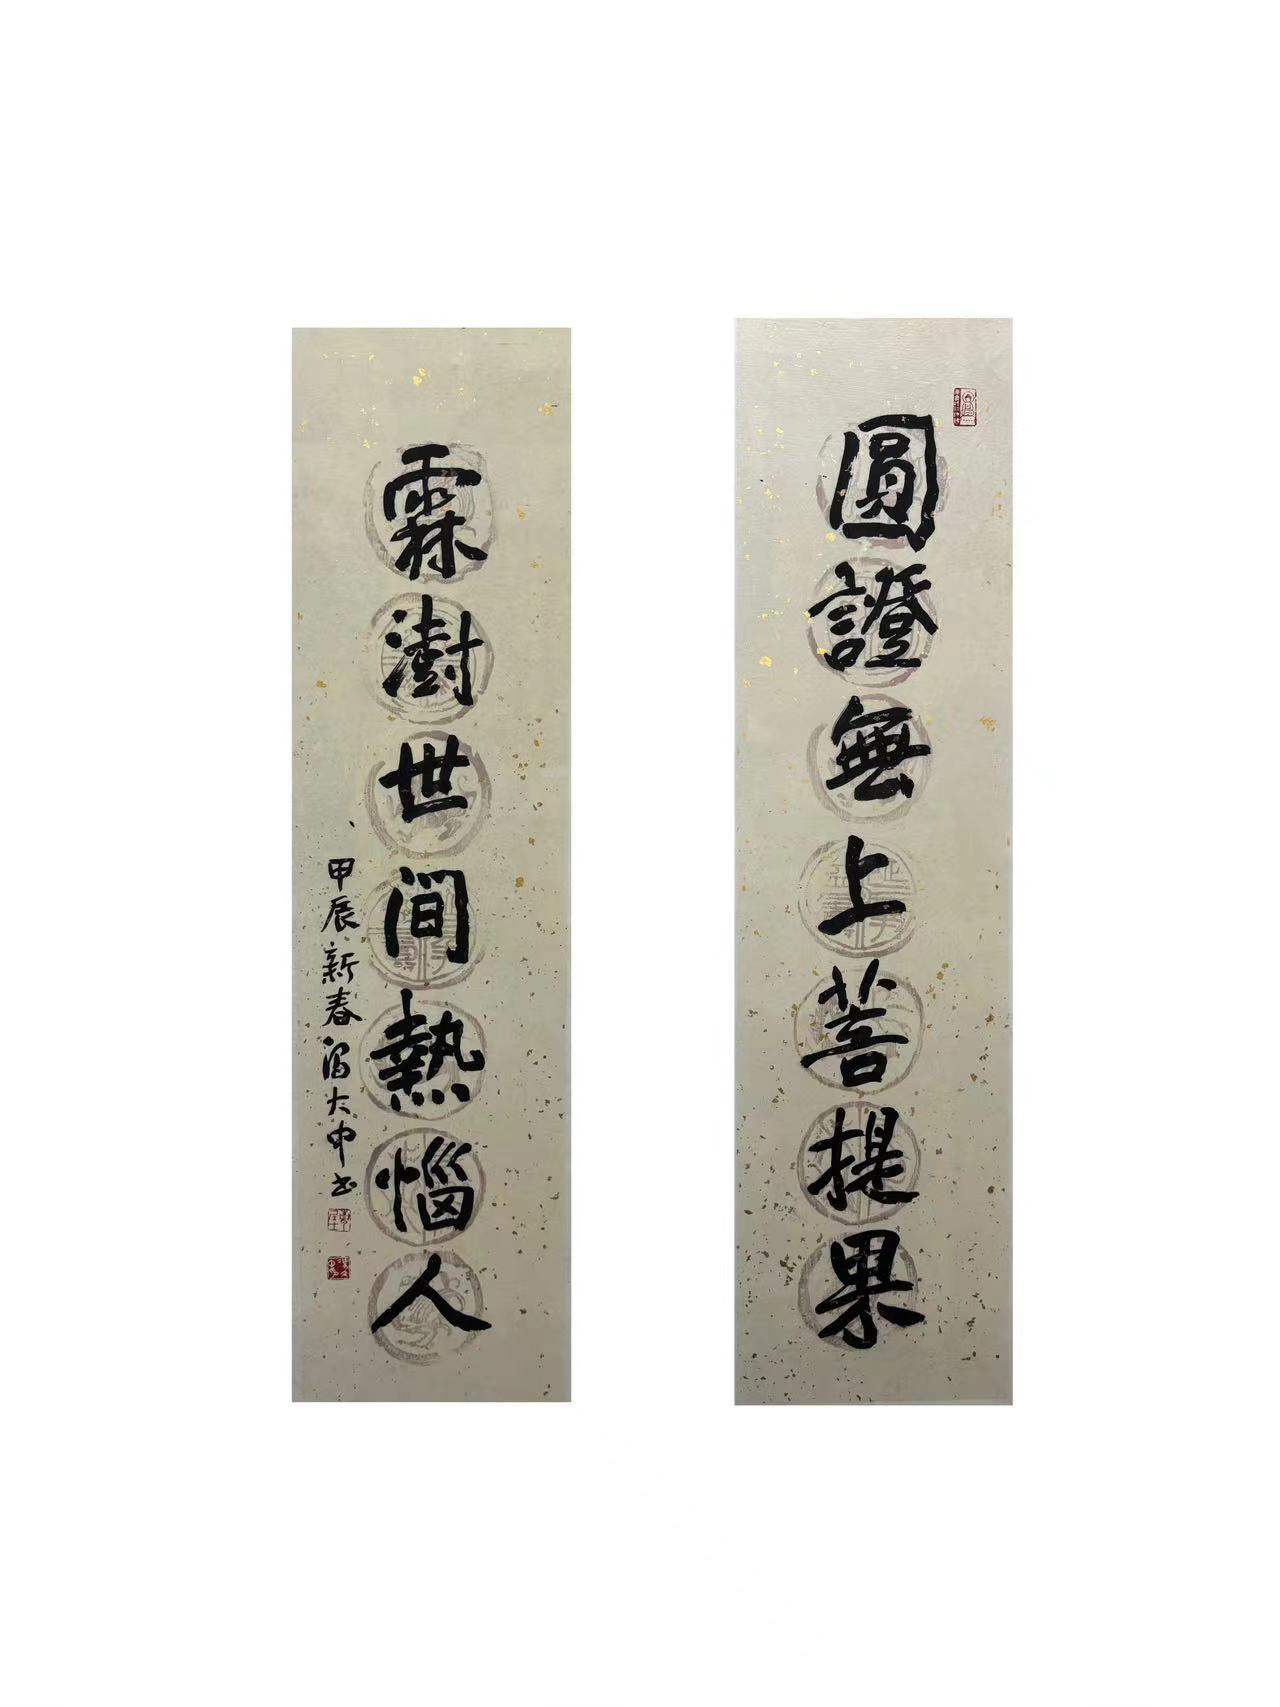 圓證無上菩提果
霖澍世間熱惱人
甲辰新春 大申书